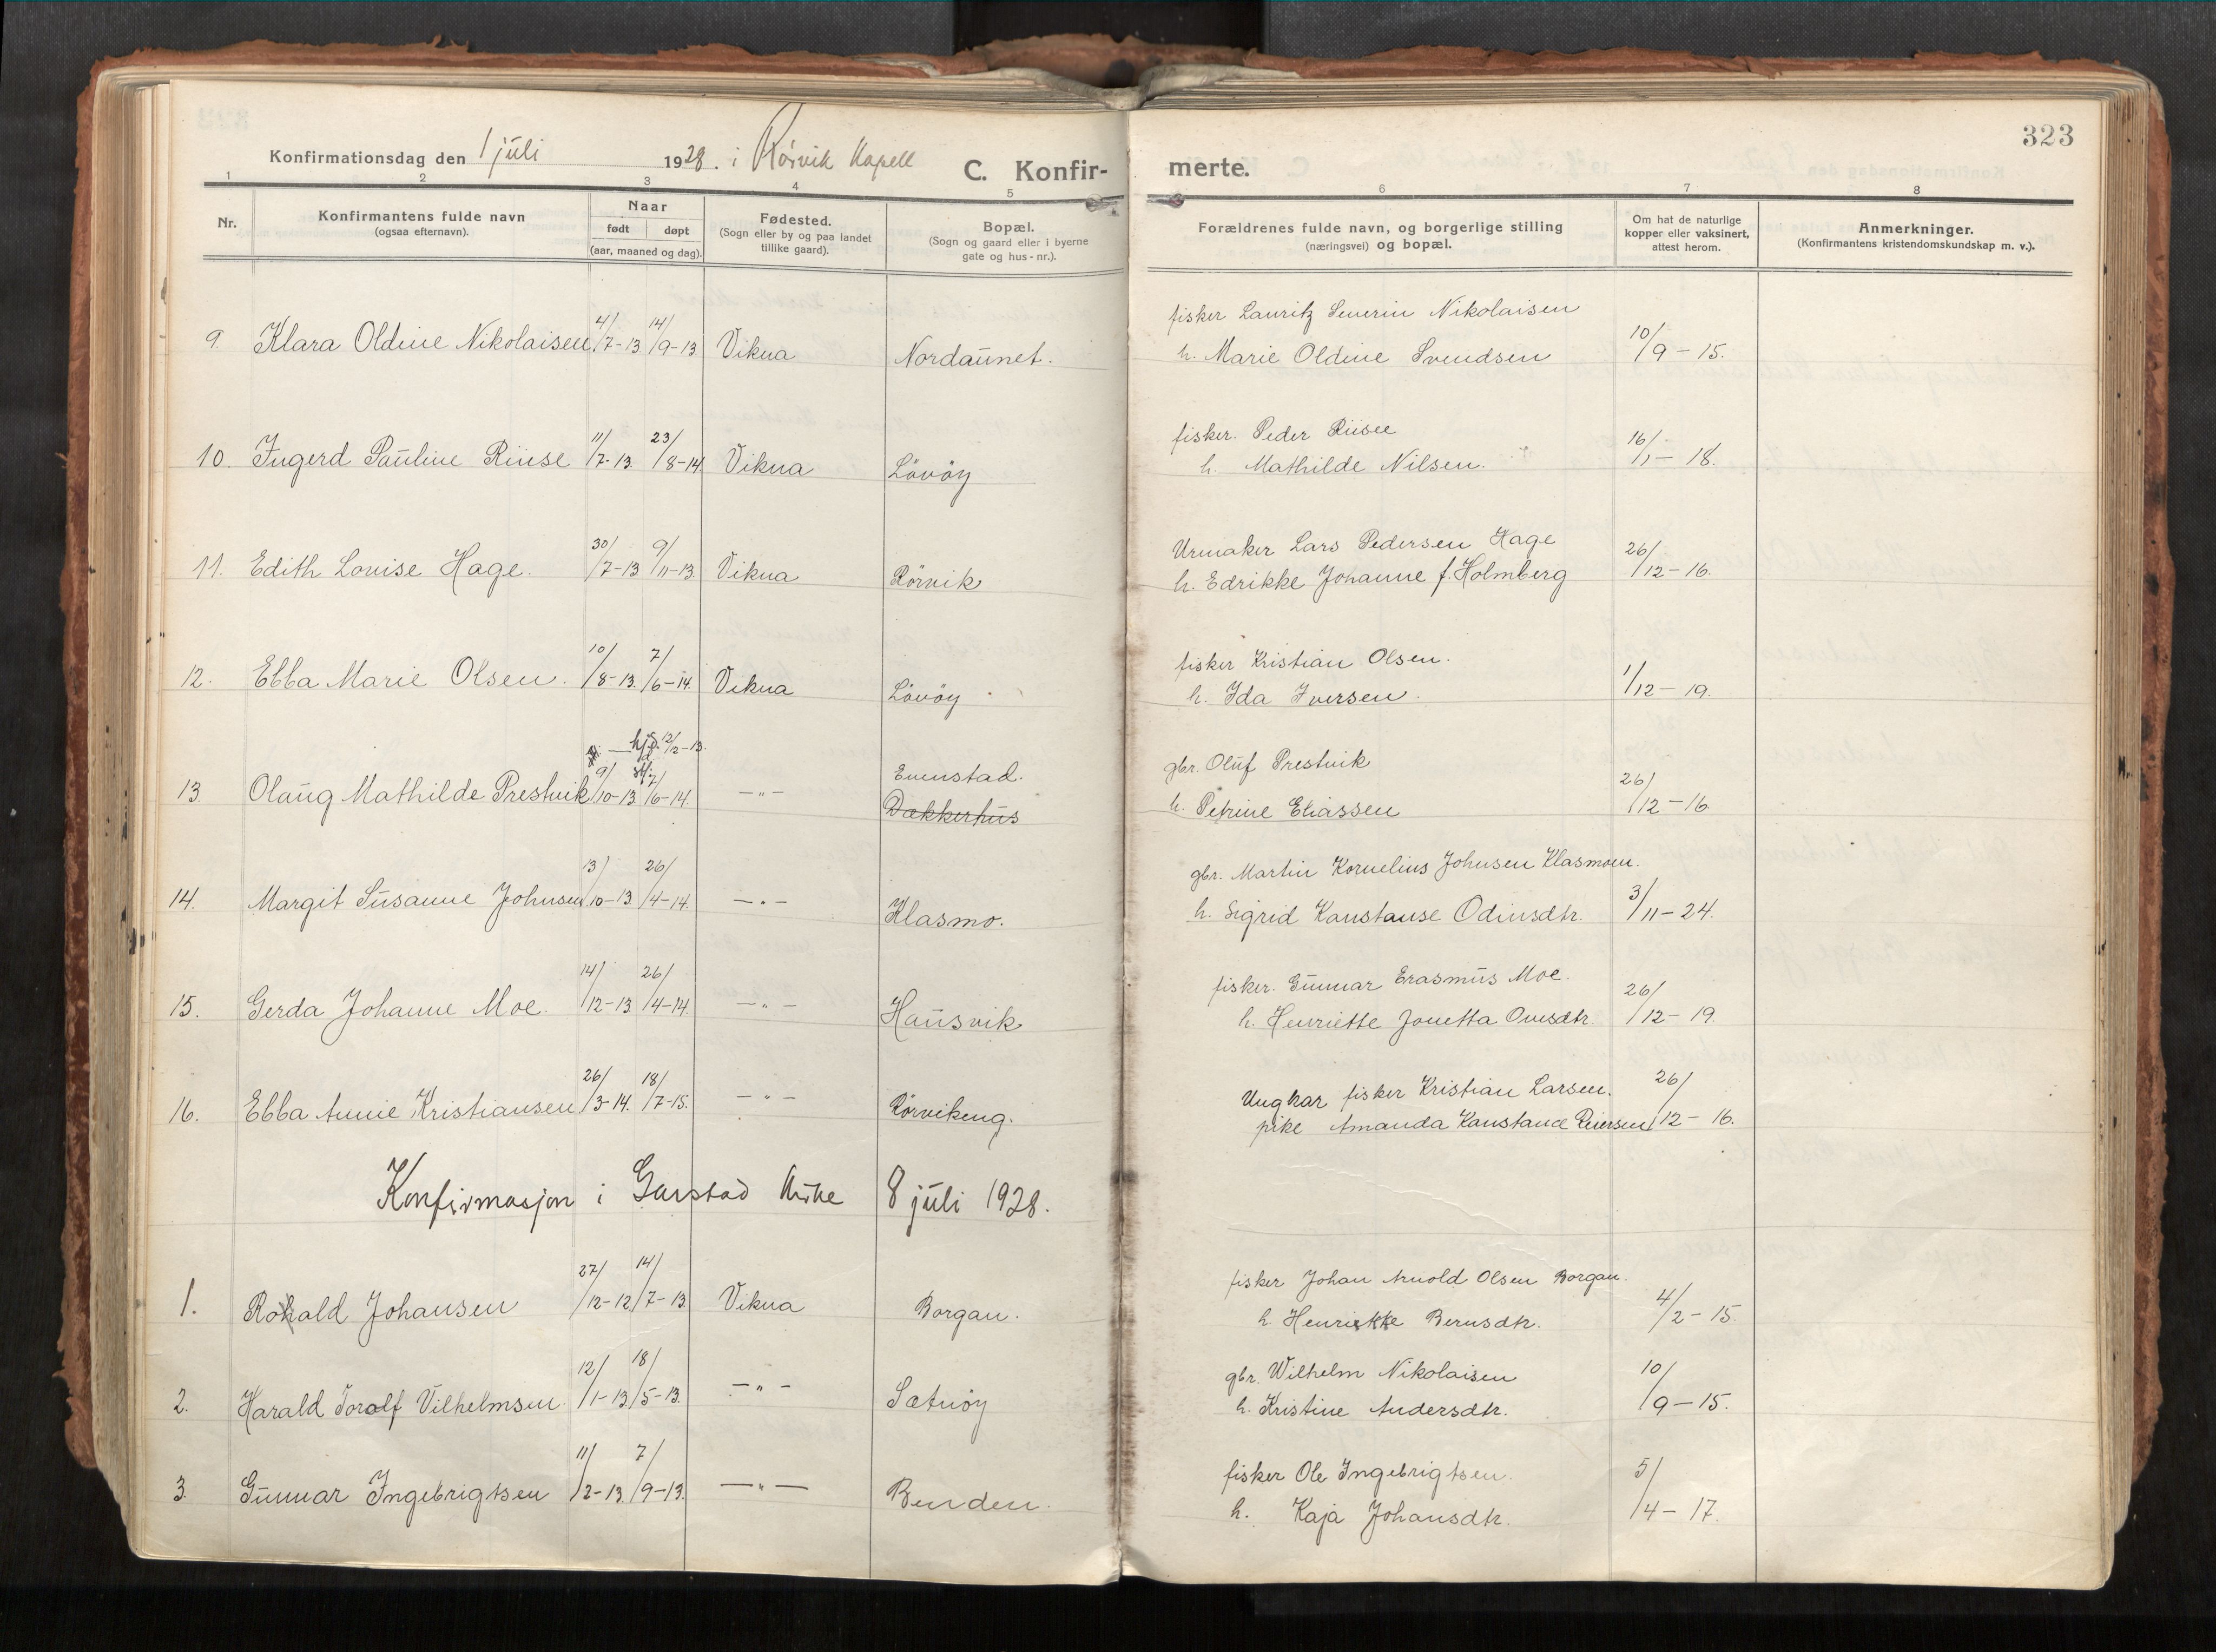 323
Konfirmationsdag den 1 juli 1928. i Rørvik Kapell
C. Konfir- merte.
1 2 3 4 5 6 7 8
Nr.
Konfirmantens fulde navn
(ogsaa efternavn).
Naar
født døpt
(aar, maaned og dag).
Fødested.
(Sogn eller by og paa landet
tillike gaard).
Bopæl.
(Sogn og gaard eller i byerne
gate og hus-nr.).
Forældrenes fulde navn, og borgerlige stilling
(næringsvei) og bopæl.
Om hat de naturlige
kopper eller vaksinert,
attest herom.
Anmerkninger.
(Konfirmantens kristendomskundskap m. v.).
fisker Lauritz Severin Nikolaisen
9. Klara Oldine Nikolaisen 4/7-13 14/9-13 Vikna Nordaunet. h. Marie Oldine Svendsen 10/9-15.
fisker. Peder Riise
10. Ingerd Pauline Riise 11/7-13. 23/8-14 Vikna Lövöy h. Mathilde Nilsen. 16/1-18.
Urmaker Lars Pedersen Hage
11. Edith Lovise Hage. 30/7-13 9/11-13. Vikna Rörvik h. Edrikke Johanne f. Holmberg 26/12-16.
fisker Kristian Olsen.
12. Ebba Marie Olsen. 10/8-13. 7/6-14. Vikna Lövöy h. Ida Iversen. 1/12-19.
hjd. 12/2-13.
Evenstad. gbr. Oluf Prestvik
13. Olaug Mathilde Prestvik 9/10-13 7/6-14. -"- Dækkerhus h. Petrine Eliassen 26/12-16.
gbr. Martin Kornelius Johnsen Klasmoen.
14. Margit Susanne Johnsen 13/10-13 26/4-14. -"- Klasmo. h. Sigrid Konstanse Odinsdtr. 3/11-24.
fisker. Gunnar Erasmus Moe.
15. Gerda Johanne Moe. 14/12-13 26/4-14. -"- Hansvik h. Henriette Jonetta Ovesdtr. 26/12-19.
Ungkar fisker Kristian Larsen.
16. Ebba Annie Kristiansen 26/3-14. 18/7-15. -"- Rörvikeng. pike Amanda Konstance Reiersen 26/12-16.
Konfirmasjon i Garstad kirke 8 juli 1928.
fisker Johan Arnold Olsen Borgan.
1. Rohald Johansen 27/12-12 14/7-13 Vikna Borgan. h. Henrikke Bernsdtr. 4/2-15.
gbr. Wilhelm Nikolaisen
2. Harald Toralf Vilhelmsen 12/1-13 18/5-13. -"- Sætnöy h. Kristine Andersdtr. 10/9-15.
fisker Ole Ingebrigtsen.
3. Gunnar Ingebrigtsen 11/2-13. 7/9-13. -"- Benden. h. Kaja Johansdtr. 5/4-17.